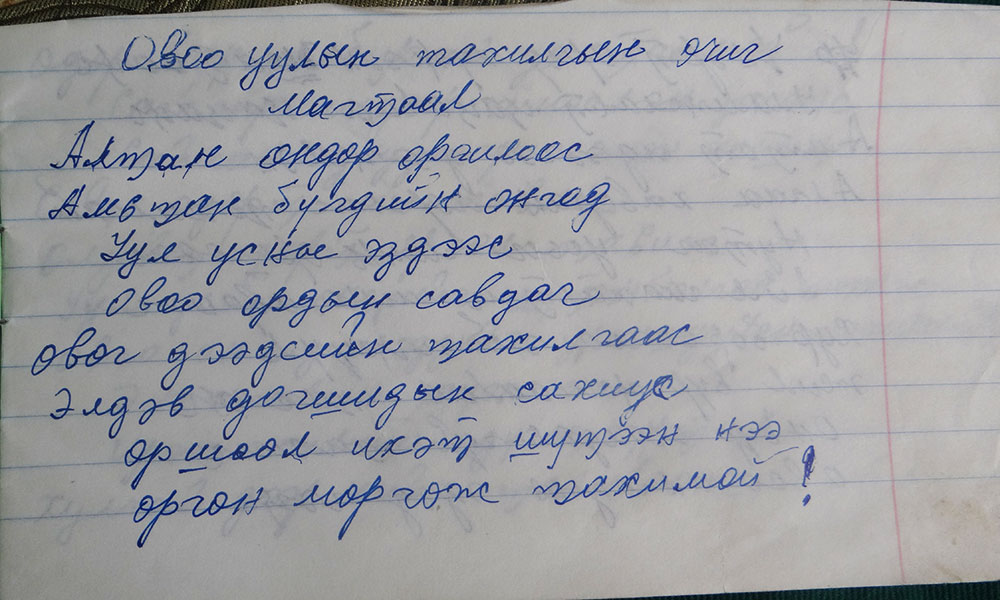 Овоо уулын тахилгын очиг
Магтаал
Алтан ондор оргилоос
Амьтан бүгдийн онгод
Уул усны эздээс
Овоо ордын савдаг
овог дээдсийн тахилгаас
Элдэв догшидын сахиус
оршоол ихэт шүтээн нээ
оргон моргож тахимой!